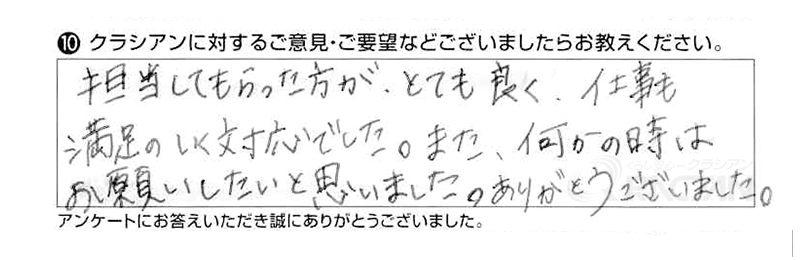 ⑩ クラシアンに対するご意見・ご要望などございましたらお教えください。
担当してもらった方が、とても良く、仕事も
満足のいく対応でした。また、何かの時は
お願いしたいと思いました。ありがとうございました。
アンケートにお答えいただき誠にありがとうございました。